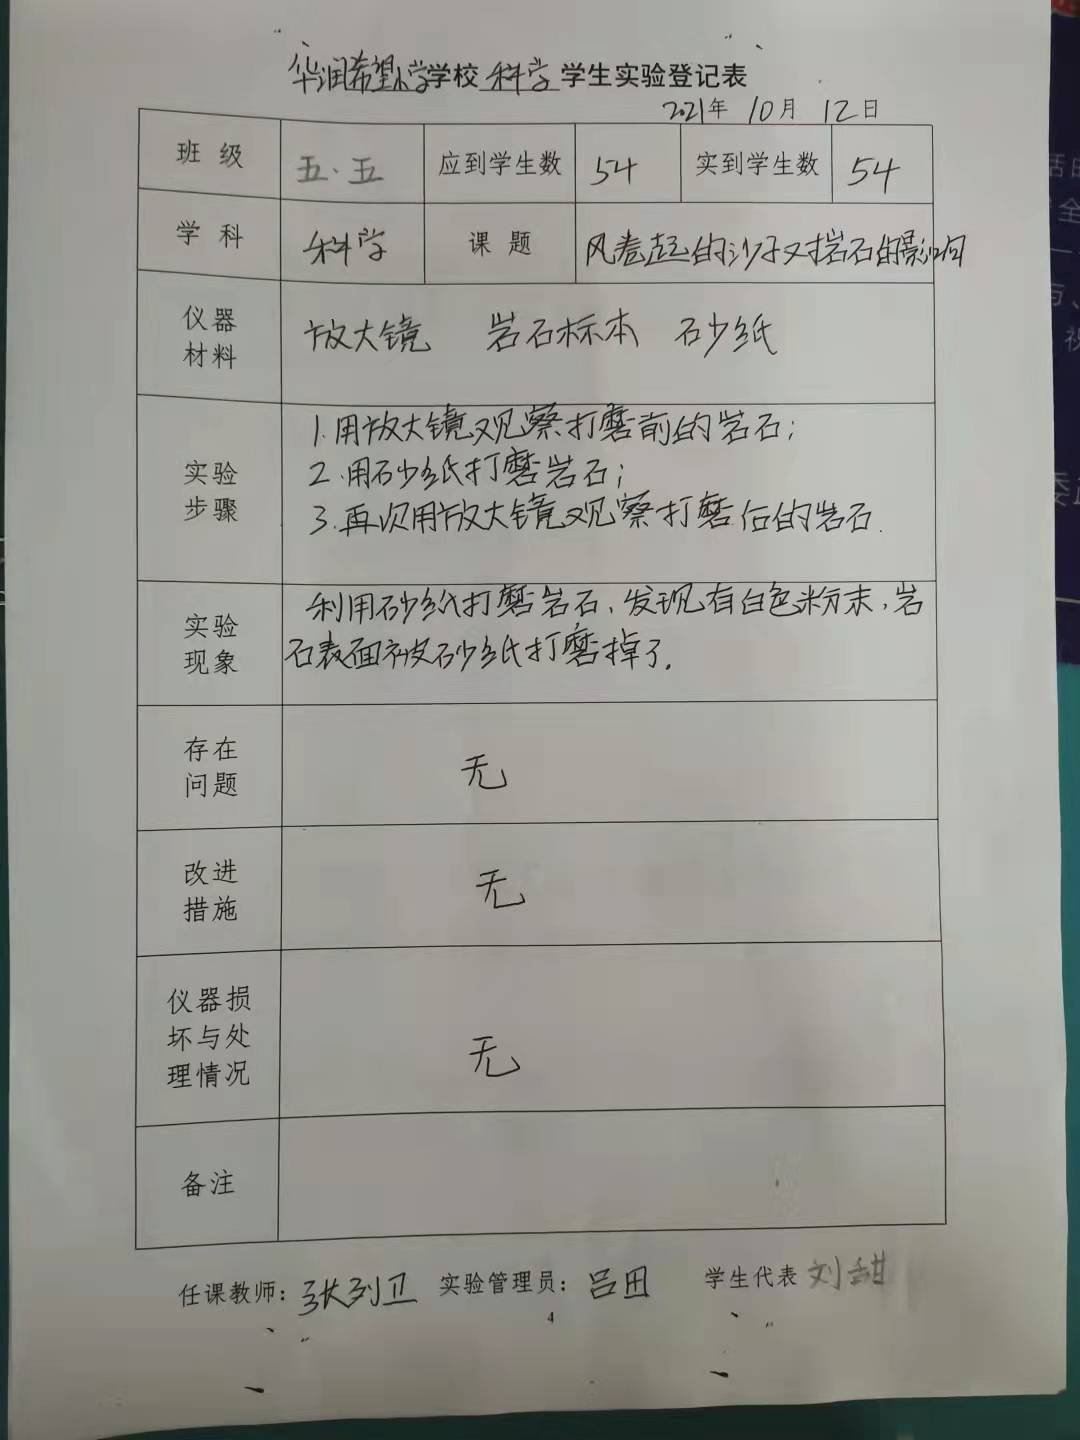 华润希望小学学校 科学 学生实验登记表
2021年 10月 12日
班级 五.五 应到学生数 54 实到学生数 54
学科 科学 课题 风卷起的沙子对岩石的影响
仪器材料 放大镜 岩石标本 砂纸
实验步骤
1.用放大镜观察打磨前的岩石;
2.用砂纸打磨岩石;
3.再次用放大镜观察打磨后的岩石.
实验现象
利用砂纸打磨岩石,发现有白色粉末,岩
石表面被砂纸打磨掉了.
存在问题 无
改进措施 无
仪器损坏与处理情况 无
备注
任课教师: 张列卫 实验管理员: 吕田 学生代表 刘甜
4